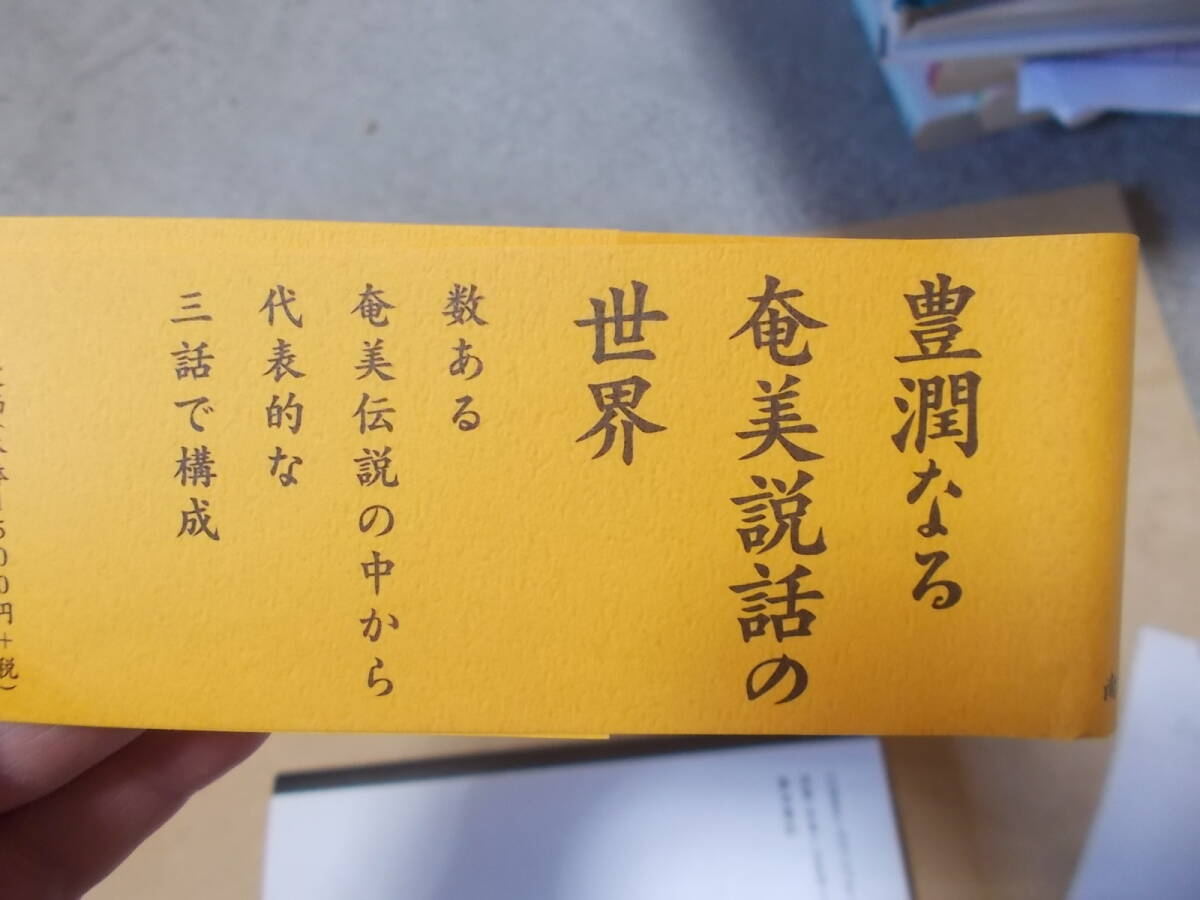 豊潤なる
奄美説話の
世界
数ある
奄美伝説の中から
代表的な
三話で構成
500円+税)